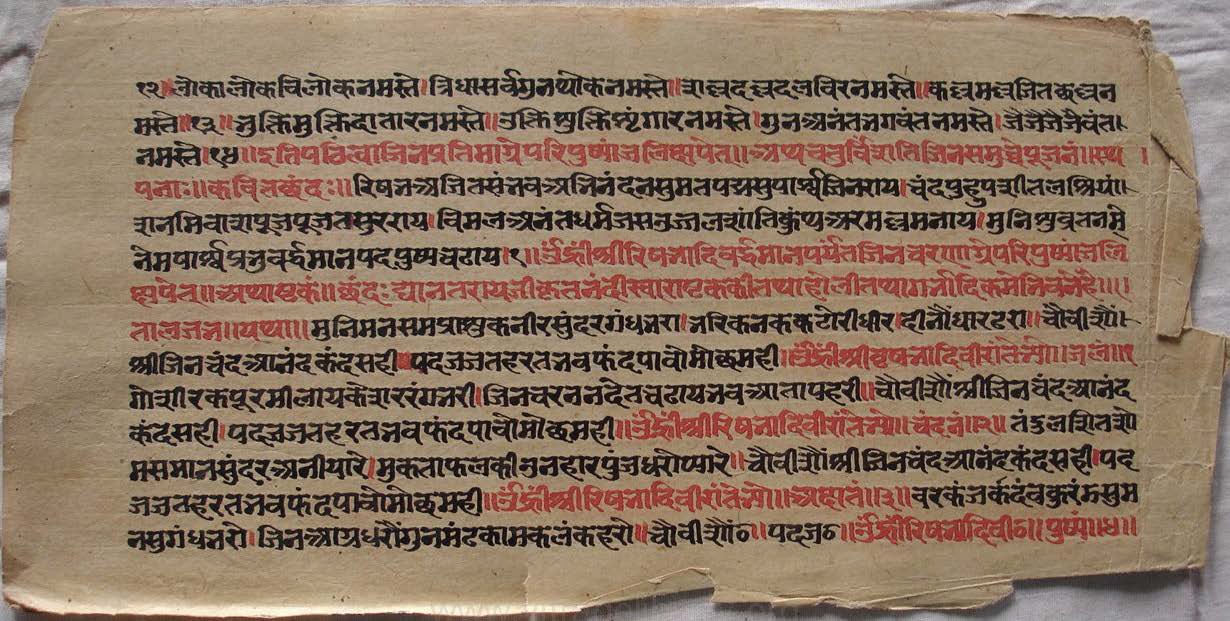 १२। लोकालोकविलोकनमस्ते। त्रिधासर्वगुनथोकनमस्ते॥ नमस्ते॥
मस्ते॥१३॥ भुक्तिमुक्तिदातारनमस्ते॥ उक्तिशृंगारनमस्ते। गुनअनंतभगवंतनमस्ते। जैजैजैजैवंत।
नमस्ते।१४॥ इतिपठित्वाजिनप्रतिमाग्रेपरिपुष्पांजलिंक्षपेत॥ अथचतुर्विंशतिजिनसमुच्चैपूजनं॥ स्थ
पनाः॥ कवित्तछंदः॥ रिषभअजितसंभवअभिनंदनसुमतपद्मसुपार्श्वजिनराय। चंदपुहुपशीतलश्रियां।
पूजपूजतसुरराय। विमलअनंतधर्मजसउज्जलशांतिकुंथअरमल्लमनाय। मुनिसुव्रतनमि
नेमपार्श्वप्रभुवर्द्धमानपदपुष्पचढाय।१॥ उँह्रींश्रीरिषभादिवर्द्धमानपर्यंतजिनचरणाग्रेपरिपुष्पांजलि
क्षपेत॥ अथाष्टकं॥ छंदः द्यानतरायजीकृतनंदीस्वाराष्टककीतथाहोलीतथागर्भादिकमे
तालजन॥ यथा॥ मुनिमनसमप्राशुकनीरसुंदरगंधभरा। भरिकनककटोरीधीर। दीनौंधारटरा॥ चौवीशौं।
श्रीजिनचंदआनंदकंदसही॥ पदजजतहरतभवफंदपावोमोछमही। उँह्रींश्रीवृषभादिवीरांतेभ्यो॥ जलं॥१
गोशीरकपूरमीलायकेशररंगभरी। जिनचरननदेतचढायभवआतापहरी॥ चौवीशौंश्रीजिनचंदआनंद
कंदसही। पदजजतहरतभवफंदपावोमोछमही॥ उँह्रींश्रीरिषभादिवीरांतेभ्यो॥ चंदनं॥२॥ तंडुलशितशौ
मसमानसुंदरअनीयारे। मुकताफलकीउनहारपुंजधरौप्यारे॥ चौवीशौंश्रीजिनचंदआनंदकंदसही। पद
जजतहरतभवफंदपावोमोछमही॥ उँह्रींश्रीरिषभादिवीरांतेभ्यो॥ अक्षतं॥३॥ वरकंजकदंवकुरंडसुम
नसुगंधभरो। जिनआग्रधरौंगुनमंडकामकलंकहरो॥ चौवीशौं०॥ पदज०॥ उँह्रींरिषभादिवी०॥ पुष्पं॥४॥